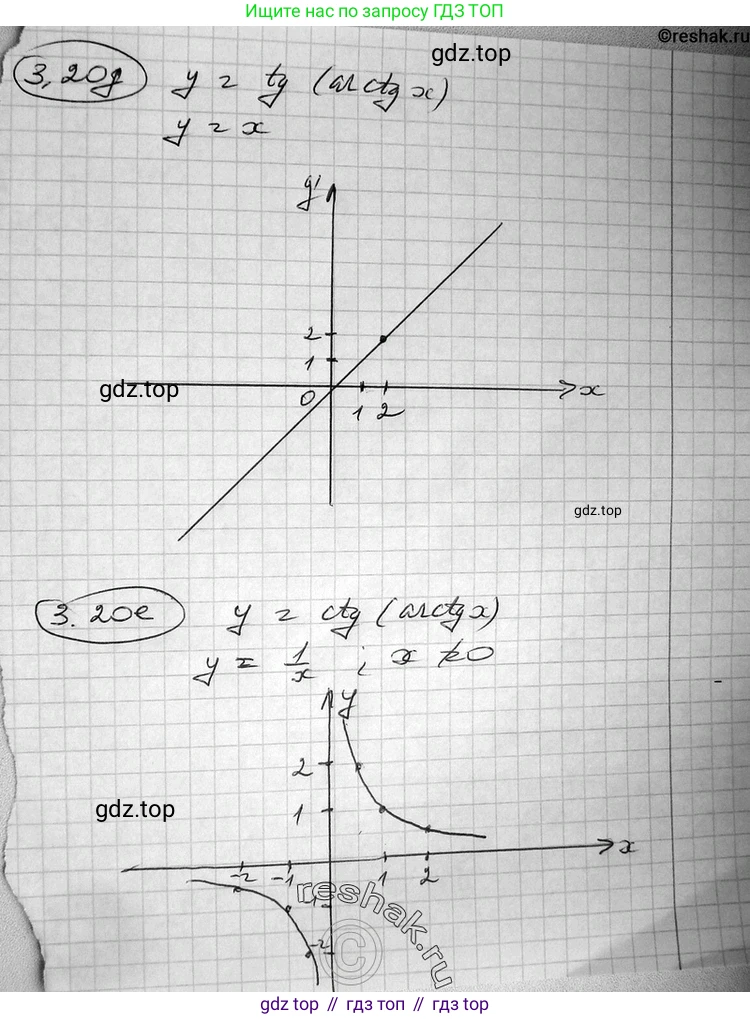 Ищите нас по запросу ГДЗ ТОП
©reshak.ru
gdz.top
3,20д y = tg (arctg x)
y = x
y
2
1
gdz.top
0
1 2
x
gdz.top
3.20е y = ctg (arctg x)
y = 1/x ; x ≠ 0
y
2
1
gdz.top
x
-2 -1 1 2
-1
reshak.ru
©
-2
gdz top // гдз топ // гдз top